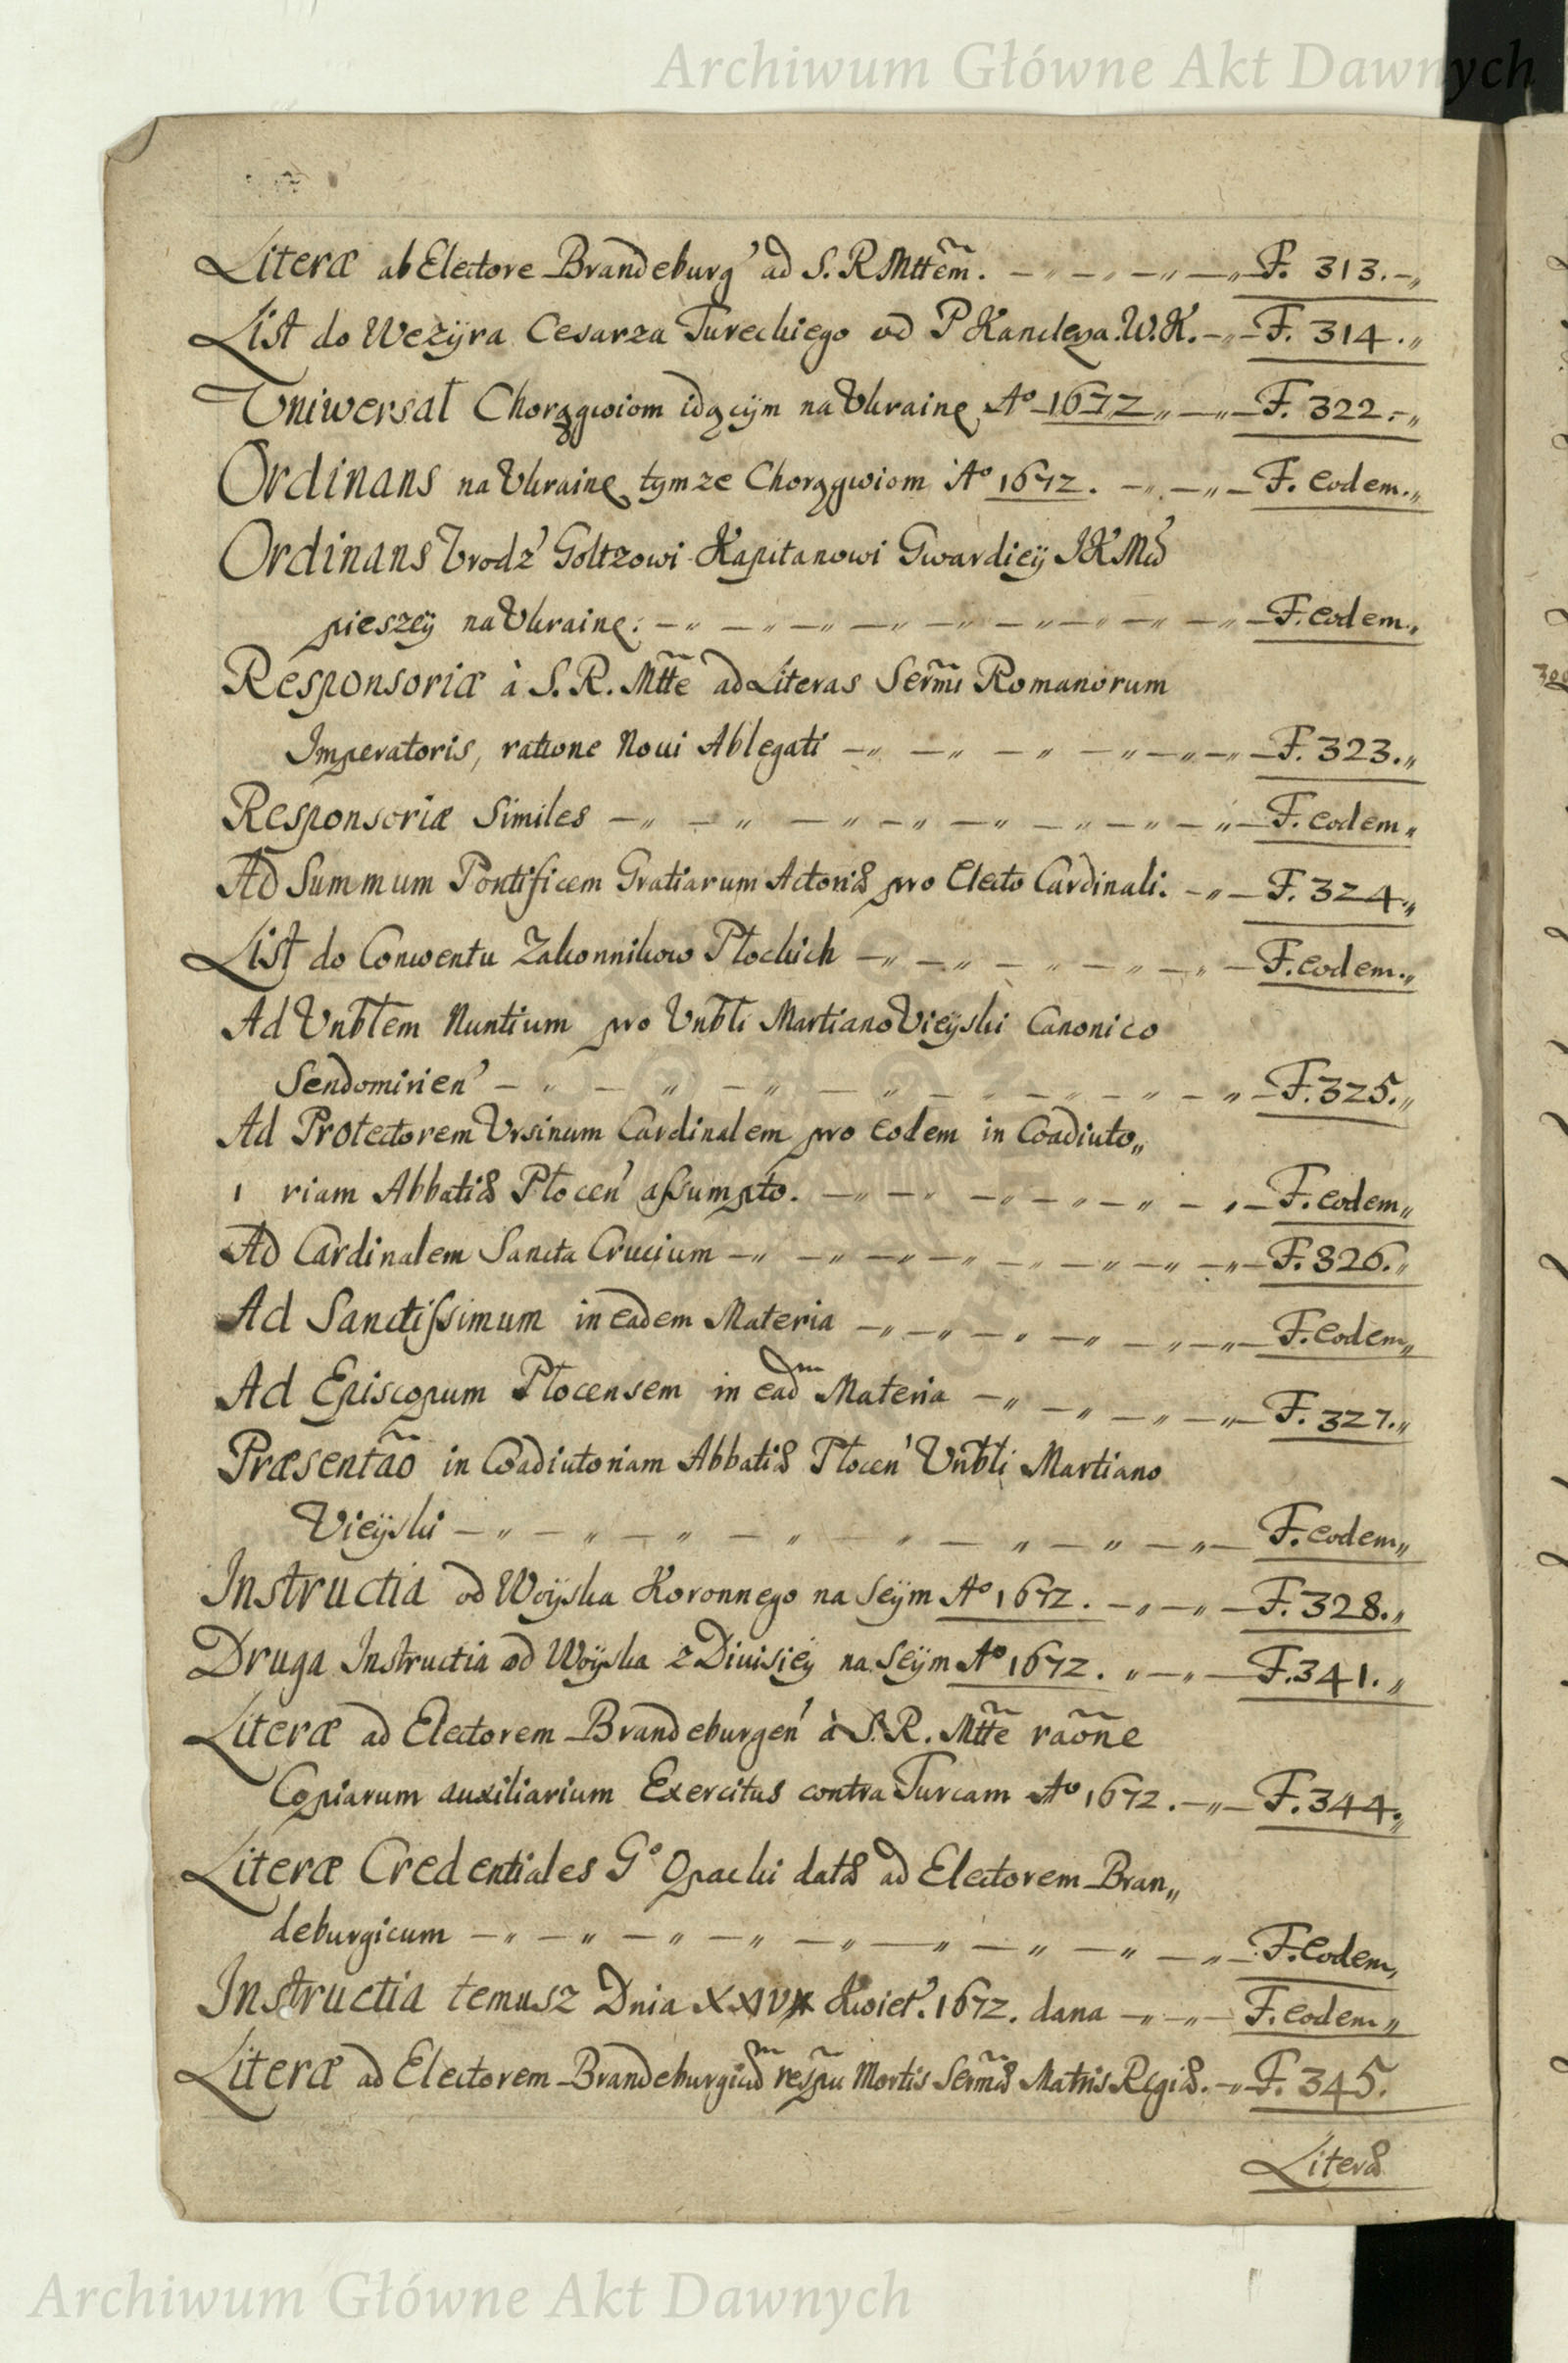 Archiwum Główne Akt Dawnych
Literæ ab Electore Brandeburg' ad S. R Mttẽm. – „ – „ – „ – „ F. 313. – „
List do Wezÿra Cesarza Tureckiego od P Kanclerza. W. K. – „ – F. 314. „
Uniwersał Chorągwiom idącÿm na Ukrainę Aº 1672 „ – „ – F. 322. – „
Ordinans na Ukrainę tymze Chorągwiom Aº 1672. – „ – „ – F. eodem. „
Ordinans Urodz' Goltzowi Kapitanowi Gwardieÿ JKMći
pieszeÿ na Ukrainę. – „ – „ – „ – „ – „ – „ – „ – „ – F. eodem. „
Responsoriæ à S. R. Mttẽ ad Literas Serm̃i Romanorum
Imperatoris, ratione Noui Ablegati – „ – „ – „ – „ – „ – F. 323. „
Responsoriæ Similes – „ – „ – „ – „ – „ – „ – „ – „ – F. eodem „
Ad Summum Pontificem Gratiarum Actoriæ pro Electo Cardinali. – „ – F. 324. „
List do Conwentu Zakonnikow Płockich – „ – „ – „ – „ – „ – F. eodem. „
Ad Vnbłem Nuntium pro Vnbli Martiano Vieÿski Canonico
Sendomirien' – „ – „ – „ – „ – „ – „ – „ – „ – F. 325. „
Ad Protectorem Vrsinum Cardinalem pro eodem in Coadiuto„
riam Abbatiæ Płocen' assumpto. – „ – „ – „ – „ – „ – „ – F. eodem „
Ad Cardinalem Sancta Crucium – „ – „ – „ – „ – „ – „ – „ – F. 326. „
Ad Sanctissimum in eadem Materia – „ – „ – „ – „ – „ – „ – F. eodem „
Ad Episcopum Płocensem in ead̃m Materia – „ – „ – „ – „ – F. 327. „
Præsentão in Coadiutoriam Abbatiæ Płocen' Vnbli Martiano
Vieÿski – „ – „ – „ – „ – „ – „ – „ – „ – F. eodem „
Instructia od Woÿska Koronnego na Seÿm Aº 1672. – „ – „ – F. 328. „
Druga Instructia od Woÿska z Diuisieÿ na Seÿm Aº 1672. „ – „ – F. 341. „
Literæ ad Electorem Brandeburgen' à S. R. Mttẽ raõne
Copiarum auxiliarium Exercitus contra Turcam Aº 1672. – „ – F. 344. „
Literæ Credentiales Gº Opacki datæ ad Electorem Bran„
deburgicum – „ – „ – „ – „ – „ – „ – „ – „ – F. eodem „
Instructia temusz Dnia Kwiet'. 1672. dana – „ – „ – F. eodem „
Literæ ad Electorem Brandeburgicũm respũ Mortis Serm̃æ Matris Regiæ. – „ F. 345.
Literæ
Archiwum Główne Akt Dawnych